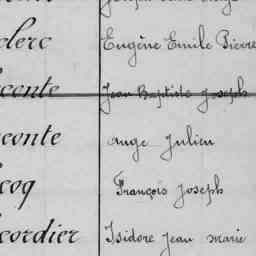 clerc Eugène Emile Pierre
econte Jean Baptiste Joseph
econte Ange Julien
coq François Joseph
cordier Isidore Jean Marie